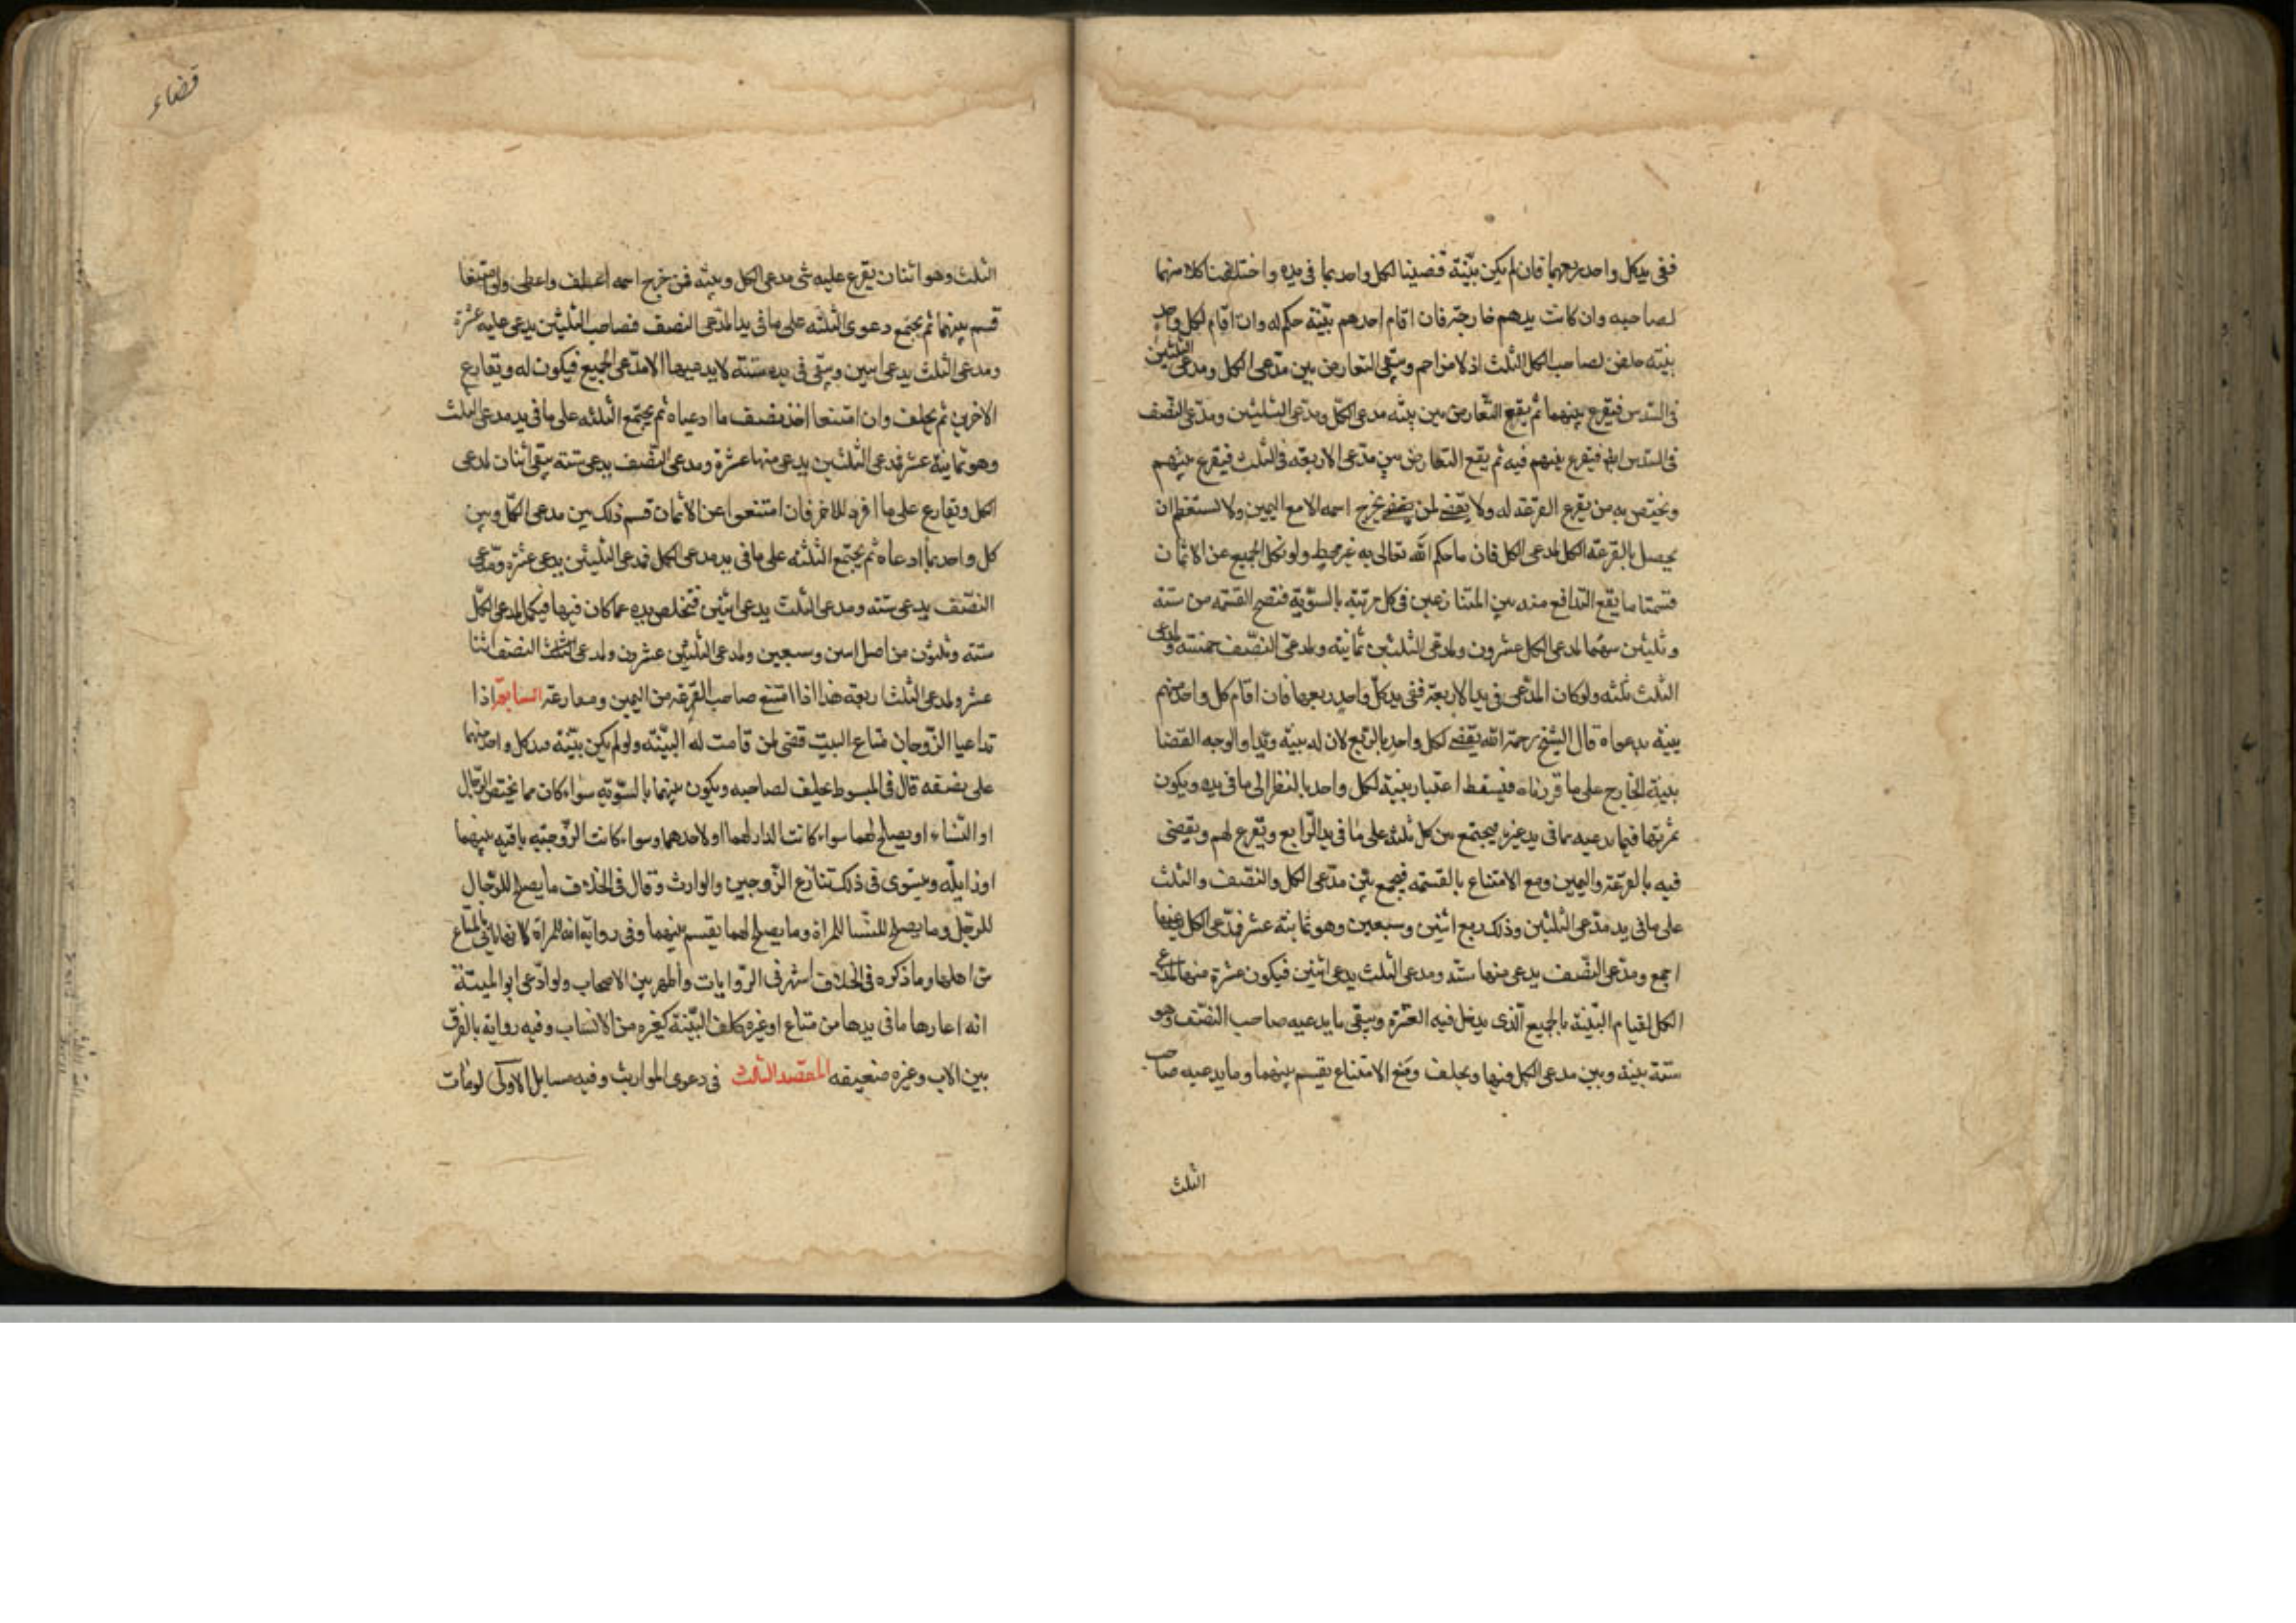 ففى يد كل واحد ربعها فان لم يكن بينة قضينا لكل واحد بما فى يده واحلفنا كلا منهما
لصاحبه وان كانت يدهم خارجة فان اقام احدهم بينة حكم له وان اقام لكل واحد
بينة خلص لصاحب الكل الثلث اذ لا مزاحم ويبقى التعارض بين مدعى الكل ومدعى الثلثين
فى السدس فيقرع بينهما ثم يقع التعارض بين بينة مدعى الكل ومدعى الثلثين ومدعى النصف
فى السدس ايضا فيقرع بينهم فيه ثم يقع التعارض بين مدعى الاربعة فى الثلث فيقرع بينهم
ويختص به من يقرع القرعة له ولا يقضى لمن يخرج اسمه الا مع اليمين ولا يستعظم ان
يحصل بالقرعة الكل لمدعى الكل فان ما حكم الله تعالى به غير مخط ولو نكل الجميع عن الايمان
قسمنا ما يقع التدافع فيه بين المتنازعين فى كل مرتبة بالسوية فتصح القسمة من ستة
وثلثين سهما لمدعى الكل عشرون ولمدعى الثلثين ثمانية ولمدعى النصف خمسة ولمدعى
الثلث ثلثة ولو كان المدعى فى يد الاربعة ففى يد كل واحد ربعها فان اقام كل واحد منهم
بينة بدعواه قال الشيخ رحمة الله يقضى لكل واحد بالربع لان له بينة ويدا والوجه القضا
ببينة الخارج على ما قررناه فيسقط اعتبار بينة كل واحد بالنظر الى ما فى يده ويكون
ثمرتها فيما يدعيه مما فى يد غيره فيجتمع بين كل ثلثة على ما فى يد الرابع ويقرع لهم ويقضى
فيه بالقرعة واليمين ومع الامتناع بالقسمة فيجمع بين مدعى الكل والنصف والثلث
على ما فى يد مدعى الثلثين وذلك ربع اثنين وسبعين وهو ثمانية عشر فمدعى الكل يدعيها
اجمع ومدعى النصف يدعى منها ستة ومدعى الثلث يدعى اثنين فيكون عشرة منها لمدعى
الكل لقيام البينة بالجميع الذى يدخل فيه العشرة ويبقى ما يدعيه صاحب النصف وهو
ستة بينه وبين مدعى الكل فيها ويحلف ومع الامتناع يقسم بينهما وما يدعيه صاحب
الثلث
قضاء
الثلث وهو اثنان يقرع عليه بين مدعى الكل وبينه فمن خرج اسمه احلف واعطى ولو امتنعا
قسم بينهما ثم يجتمع دعوى الثلثه على ما فى يد المدعى النصف فصاحب الثلثين يدعى عليه عشرة
ومدعى الثلث يدعى اثنين ويبقى فى يده ستة لا يدعيها الا مدعى الجميع فيكون له ويقارع
الاخرين ثم يحلف وان امتنعا اخذ نصف ما ادعياه ثم يجتمع الثلثه على ما فى يد مدعى الثلث
وهو ثمانية عشر فمدعى الثلثين يدعى منها عشرة ومدعى النصف يدعى ستة يبقى اثنان لمدعى
الكل ويقارع على ما افرد للاخر فان امتنعوا عن الايمان قسم ذلك بين مدعى الكل وبين
كل واحد بما ادعاه ثم يجتمع الثلثه على ما فى يد مدعى الكل فمدعى الثلثين يدعى عشرة ومدعى
النصف يدعى ستة ومدعى الثلث يدعى اثنين فتخلص يده عما كان فيها فيكمل لمدعى الكل
ستة وثلثون من اصل اثنين وسبعين ولمدعى الثلثين عشرون ولمدعى النصف اثنا
عشر ولمدعى الثلث اربعة هذا اذا امتنع صاحب القرعة من اليمين ومقارعه السابعة اذا
تداعيا الزوجان متاع البيت قضى لمن قامت له البينة ولو لم يكن بينة فيد كل واحد منهما
على نصفه قال فى المبسوط يحلف لصاحبه ويكون بينهما بالسوية سواء كان مما يختص الرجال
او النساء او يصلح لهما سواء كانت الدار لهما او لاحدهما وسواء كانت الزوجية باقية بينهما
او زايلة ويستوى فى ذلك تنازع الزوجين والوارث وقال فى الخلاف ما يصلح للرجال
للرجل وما يصلح للنسا للمراة وما يصلح لهما يقسم بينهما وفى رواية انه للمراة لانها تاتى بالمتاع
من اهلها وما ذكره فى الخلاف اشهر فى الروايات واظهر بين الاصحاب ولو ادعى ابو الميتة
انه اعارها ما فى يدها من متاع او غيره كلف البينة كغيره من الانساب وفيه رواية بالفرق
بين الاب وغيره ضعيفه المقصد الثالث فى دعوى المواريث وفيه مسايل الاولى لو مات